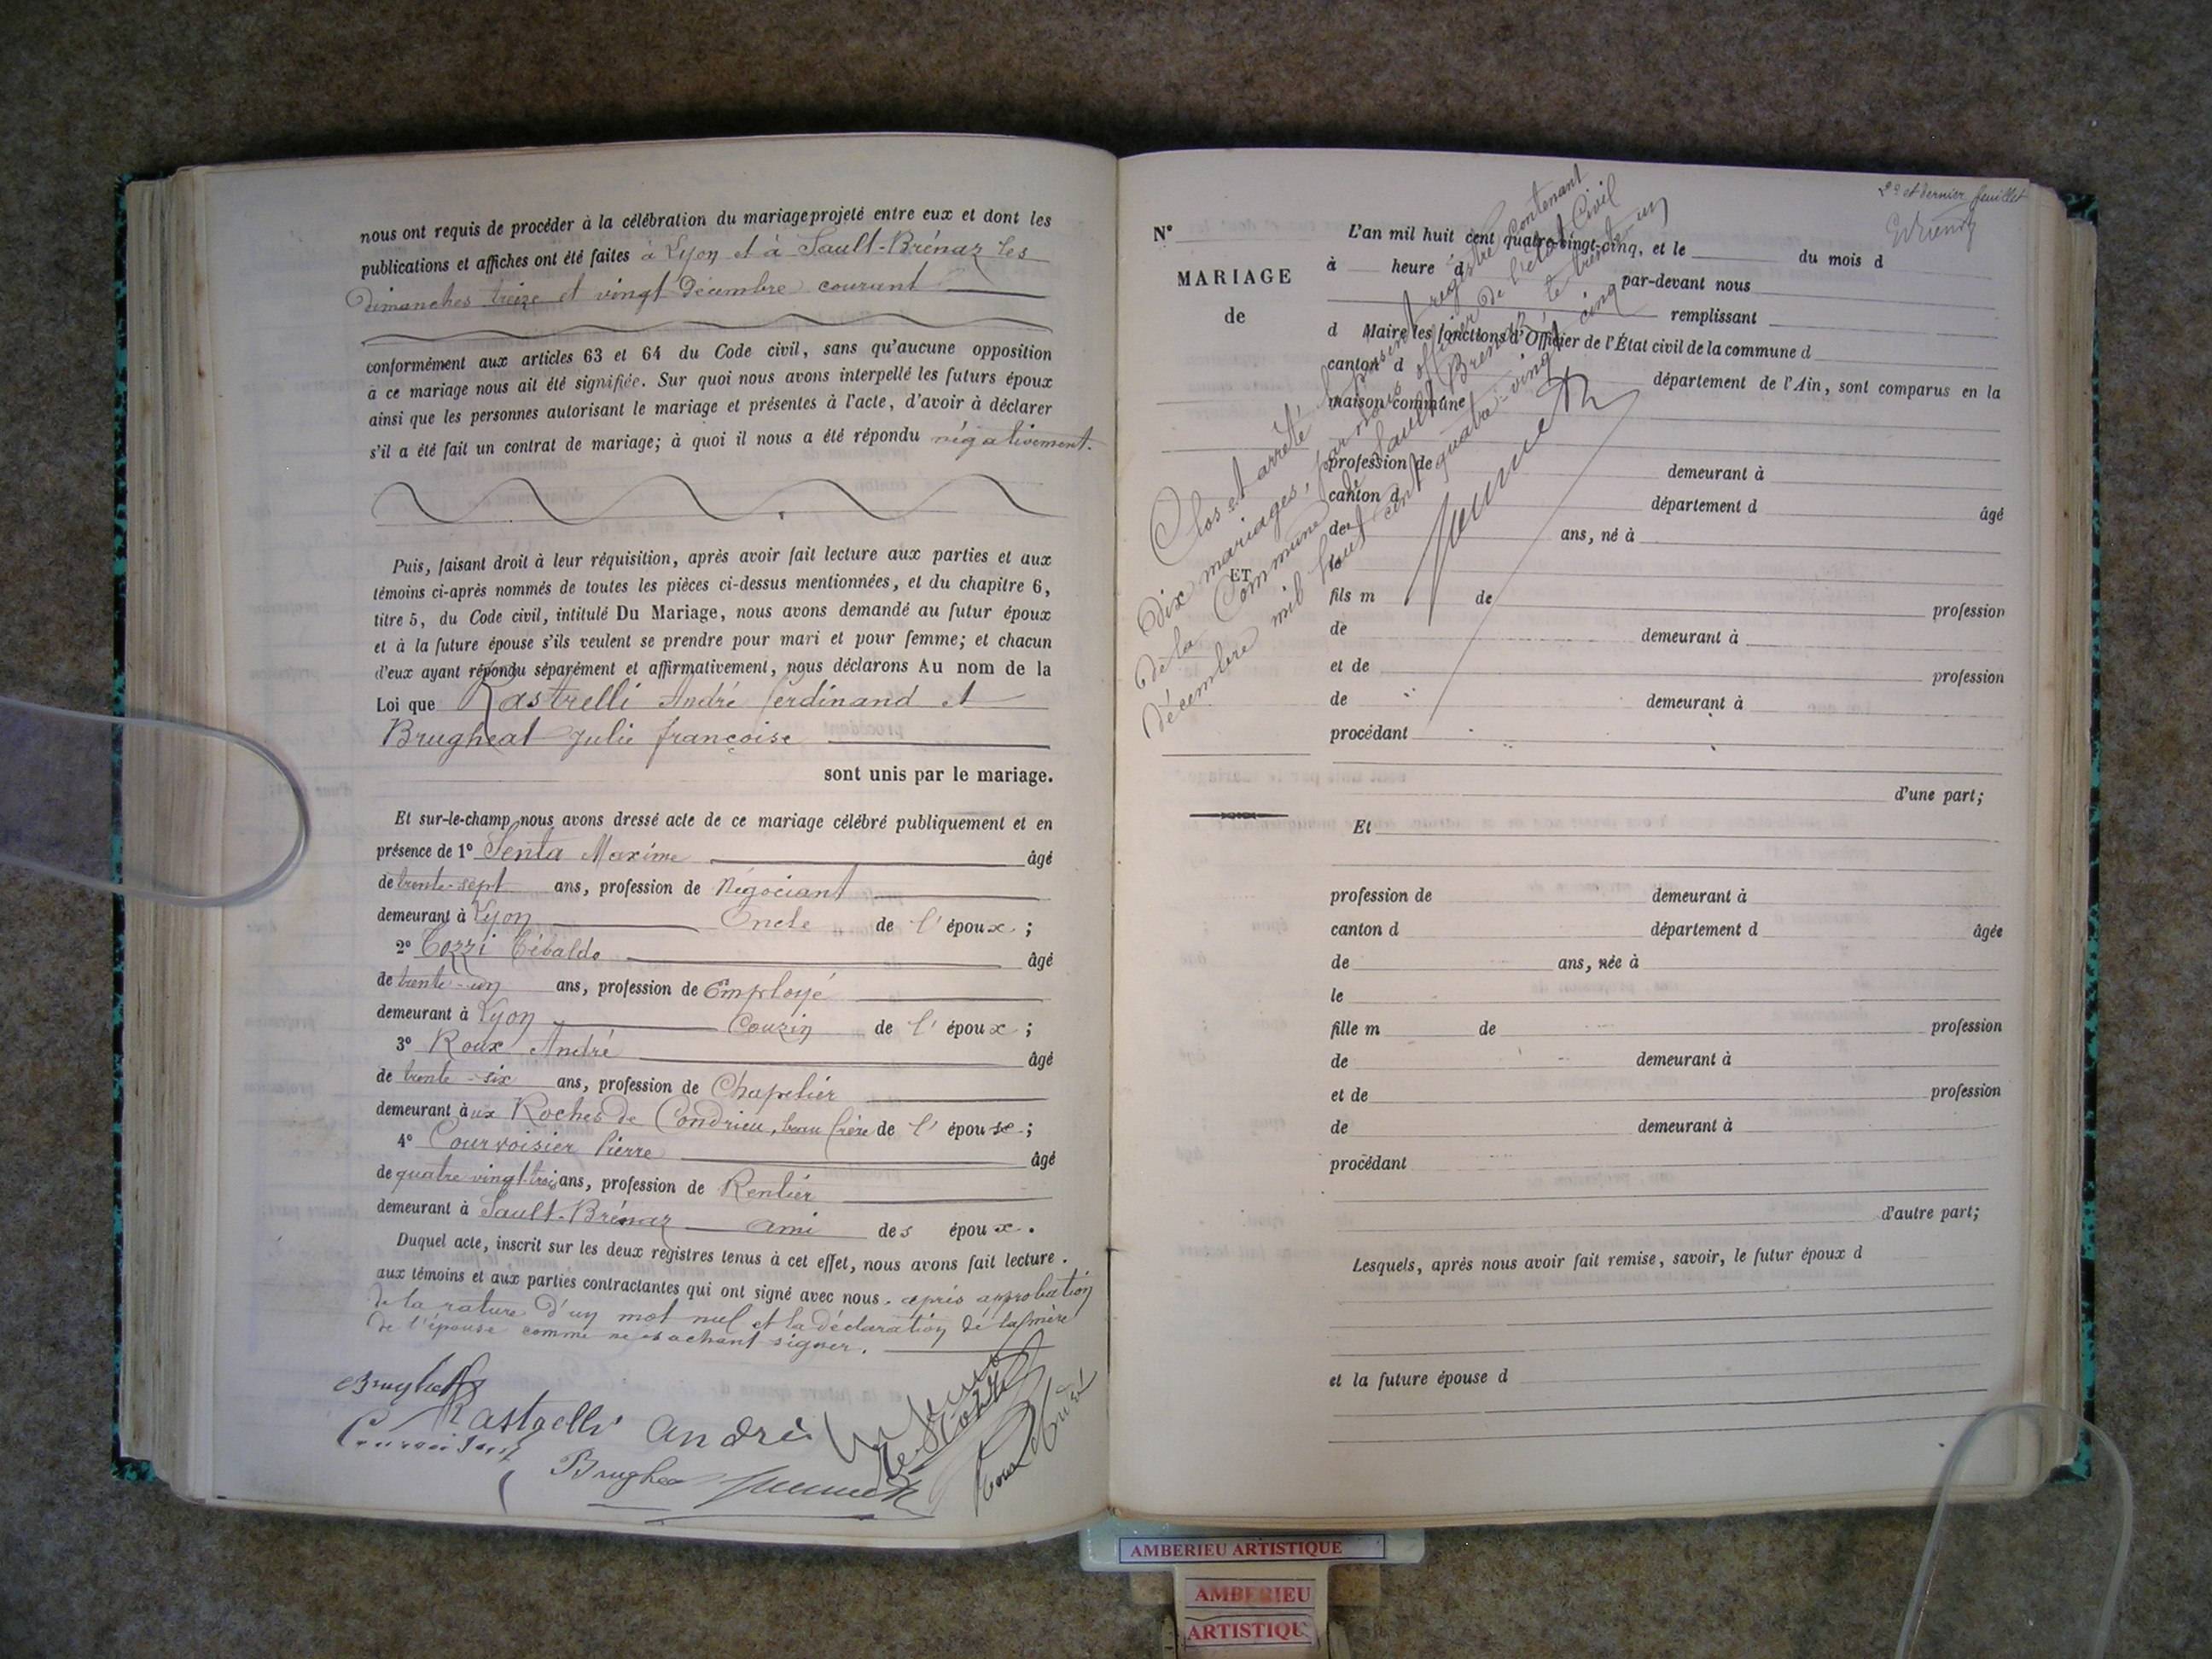 nous ont requis de procéder à la célébration du mariage projeté entre eux et dont les
publications et affiches ont été faites à Lyon et à Sault-Brénaz les
dimanches treize et vingt Décembre courant
conformément aux articles 63 et 64 du Code civil, sans qu'aucune opposition
à ce mariage nous ait été signifiée. Sur quoi nous avons interpellé les futurs époux
ainsi que les personnes autorisant le mariage et présentes à l'acte, d'avoir à déclarer
s'il a été fait un contrat de mariage; à quoi il nous a été répondu négativement.
Puis, faisant droit à leur réquisition, après avoir fait lecture aux parties et aux
témoins ci-après nommés de toutes les pièces ci-dessus mentionnées, et du chapitre 6,
titre 5, du Code civil, intitulé Du Mariage, nous avons demandé au futur époux
et à la future épouse s'ils veulent se prendre pour mari et pour femme; et chacun
d'eux ayant répondu séparément et affirmativement, nous déclarons Au nom de la
Loi que Rastrelli André ferdinand et
Brugheat Julie françoise
sont unis par le mariage.
Et sur-le-champ nous avons dressé acte de ce mariage célébré publiquement et en
présence de 1° Senta Maxime âgé
de trente-sept ans, profession de Négociant
demeurant à Lyon Oncle de l'époux;
2° Tozzi Tébaldo âgé
de trente-un ans, profession de Employé
demeurant à Lyon Couzin de l'époux;
3° Roux André âgé
de trente-six ans, profession de Chapelier
demeurant aux Roches de Condrieu, beau frère de l'épouse;
4° Courvoisier Pierre âgé
de quatre vingt trois ans, profession de Rentier
demeurant à Sault-Brénaz ami des époux.
Duquel acte, inscrit sur les deux registres tenus à cet effet, nous avons fait lecture
aux témoins et aux parties contractantes qui ont signé avec nous. après approbation
de la rature d'un mot nul et la déclaration de la mère
de l'épouse comme ne sachant signer.
Rastrelli André
2° et dernier feuillet
N°
MARIAGE
de
ET
L'an mil huit cent quatre-vingt-cinq, et le du mois d
à heure d
par-devant nous
remplissant
d Maire les fonctions d'Officier de l'État civil de la commune d
canton d
département de l'Ain, sont comparus en la
maison commune
profession de demeurant à
canton d département d âgé
de ans, né à
le
fils m de profession
de demeurant à
et de profession
de demeurant à
procédant
d'une part;
Et
profession de demeurant à
canton d département d âgée
de ans, née à
le
fille m de profession
de demeurant à
et de profession
de demeurant à
procédant
d'autre part;
Lesquels, après nous avoir fait remise, savoir, le futur époux d
et la future épouse d
Clos et arrêté le présent registre contenant
dix mariages, par nous officier de l'état Civil
de la Commune de Sault-Brénaz le trente un
décembre mil huit cent quatre-vingt cinq
AMBERIEU ARTISTIQUE
AMBERIEU
ARTISTIQU